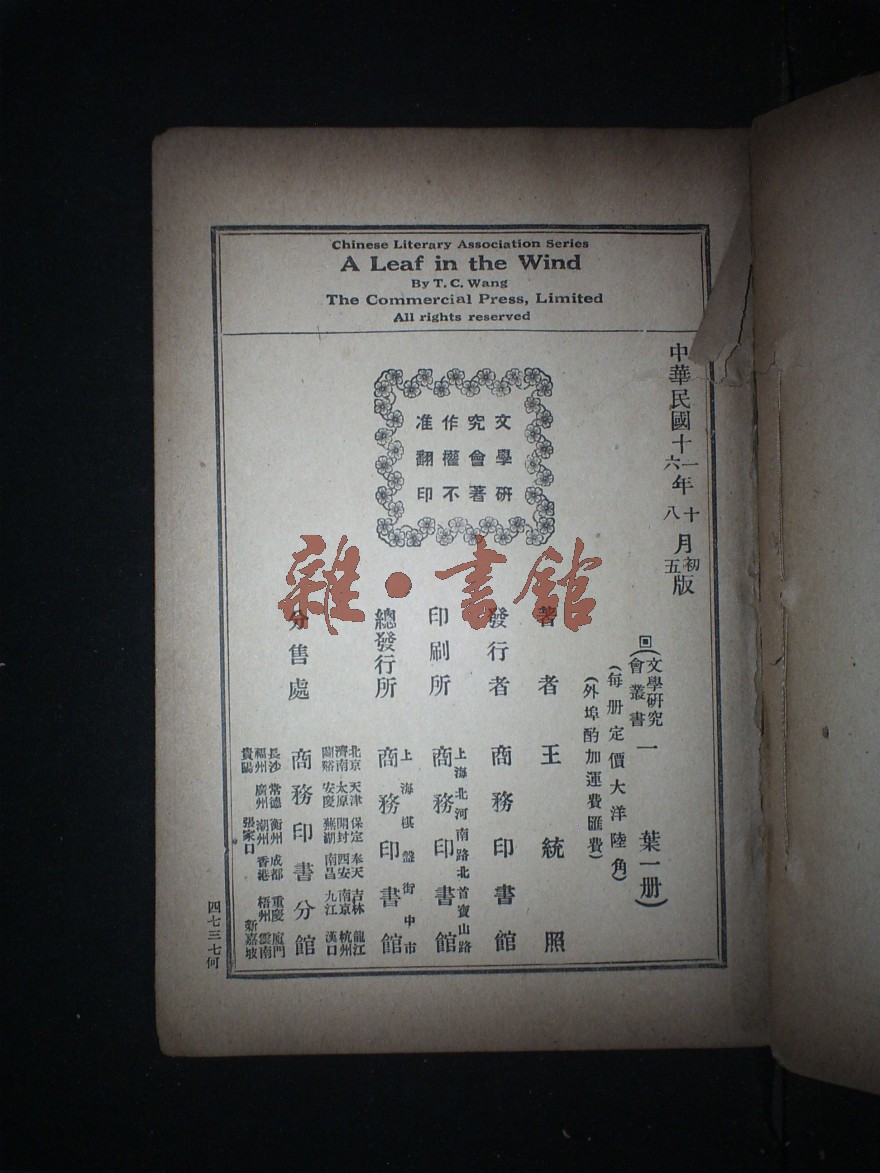 Chinese Literary Association Series
A Leaf in the Wind
By T. C. Wang
The Commercial Press, Limited
All rights reserved
中華民國十一年十月初版
六 八 五
文學研
究會著
作權不
准翻印
(文學研究會叢書)一葉一册
(每册定價大洋陸角)
(外埠酌加運費匯費)
著者 王統照
發行者 商務印書館
印刷所 上海北河南路北首寶山路 商務印書館
總發行所 上海棋盤街中市 商務印書館
分售處 商務印書分館
北京 天津 保定 奉天 吉林 龍江
濟南 太原 開封 西安 南京 杭州
蘭谿 安慶 蕪湖 南昌 九江 漢口
長沙 常德 衡州 成都 重慶 廈門
福州 廣州 潮州 香港 梧州 雲南
貴陽 張家口 新嘉坡
四七三七何
雜·書館